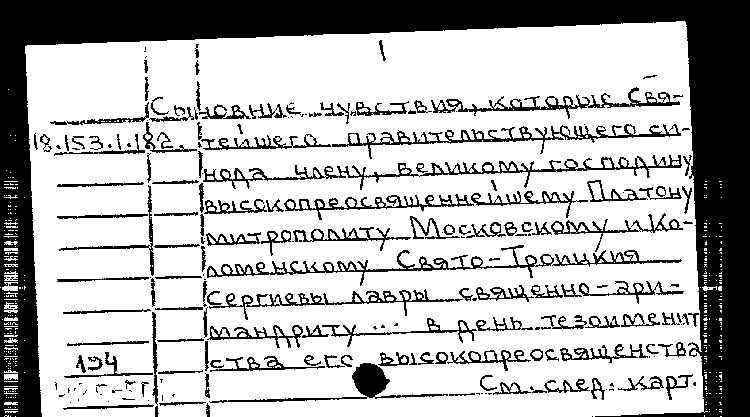 1
Сыновние чувствия, которые Свя-
18.153.1.182. тейшего правительствующего си-
нода члену, великому господину,
высокопреосвященнейшему Платону
митрополиту Московскому и Ко-
ломенскому Свято-Троицкия
Сергиевы лавры священно-архи-
мандриту ... в день тезоименит
194 ства его высокопреосвященства
См. след. карт.